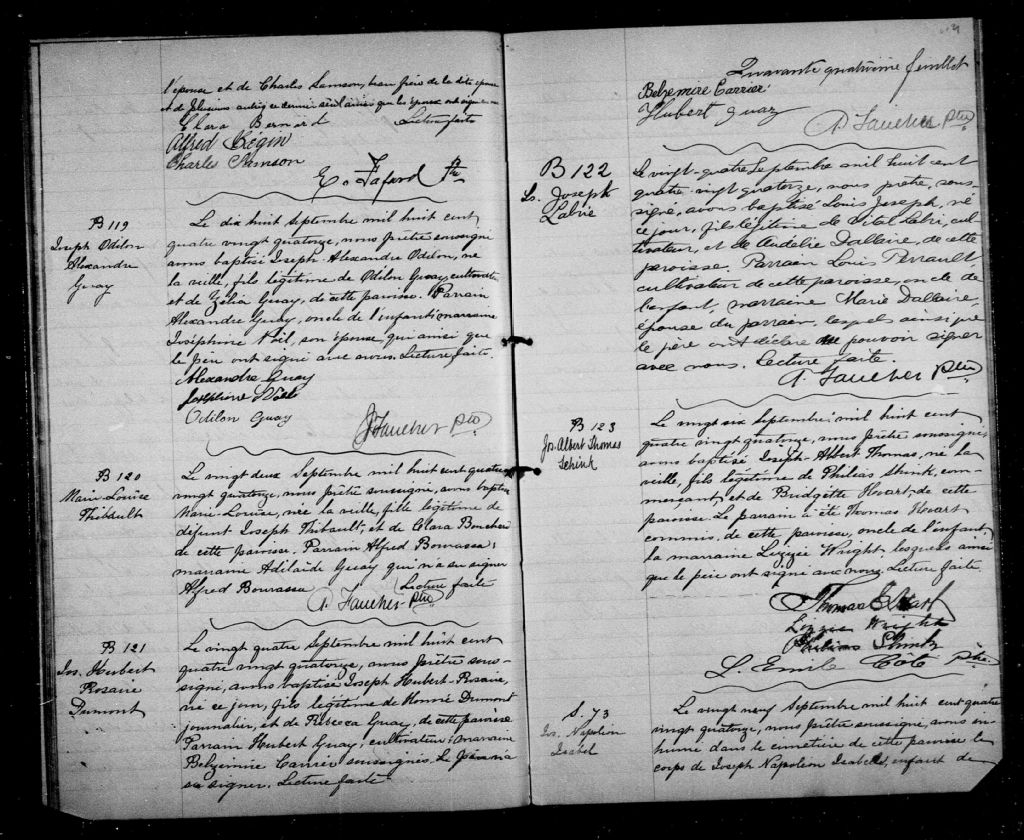 l'épouse et de Charles Samson, beau frère de la dite épouse
et de plusieurs autres ce dernier seul ainsi que les époux ont signé
Clara Bernard Lecture faite
Alfred Bégin
Charles Samson
E. Fafard Ptre
B 119
Joseph Odilon
Alexandre
Guay
Le dix huit Septembre mil huit cent
quatre vingt quatorze, nous prêtre soussigné
avons baptisé Joseph-Alexandre Odilon, né
la veille, fils légitime de Odilon Guay, cultivateur
et de Zélia Guay, de cette paroisse. Parrain
Alexandre Guay, oncle de l'enfant; marraine
Joséphine Noël, son épouse, qui ainsi que
le père ont signé avec nous. Lecture faite.
Alexandre Guay
Josephine Noël
Odilon Guay
Faucher Ptre
B 120
Marie-Louise
Thibault
Le vingt deux Septembre mil huit cent quatre
vingt quatorze, nous prêtre soussigné, avons baptisé
Marie-Louise, née la veille, fille légitime de
défunt Joseph Thibault, et de Clara Boucher
de cette paroisse. Parrain Alfred Bourassa;
marraine Adélaïde Guay qui n'a su signer
Alfred Bourassa Lecture faite
P. Faucher Ptre
B 121
Jos. Hubert
Rosaire
Dumont
Le vingt quatre Septembre mil huit cent
quatre vingt quatorze, nous prêtre sous-
signé, avons baptisé Joseph Hubert-Rosaire,
né ce jour, fils légitime de Honoré Dumont
journalier, et de Rebecca Guay, de cette paroisse
Parrain Hubert Guay, cultivateur; marraine
Belzémire Carrier soussignés. Le père n'a
su signer. Lecture faite
Quarante quatrième feuillet
Belzemire Carrier
Hubert Guay
P. Faucher Ptre
B 122
Ls. Joseph
Labrie
Le vingt-quatre Septembre mil huit cent
quatre-vingt quatorze, nous prêtre, sous-
signé, avons baptisé Louis Joseph, né
ce jour, fils légitime de Vital Labri, cul-
tivateur, et de Audélie Dallaire, de cette
paroisse. Parrain Louis Perrault
cultivateur de cette paroisse, oncle de
l'enfant, marraine Marie Dallaire,
épouse du parrain, lesquels ainsi que
le père ont déclaré ne pouvoir signer
avec nous. Lecture faite.
P. Faucher Ptre
B 123
Jos. Albert Thomas
Schink
Le vingt six Septembre mil huit cent
quatre vingt quatorze, nous prêtre soussigné,
avons baptisé Joseph-Albert Thomas, né la
veille, fils légitime de Philéas Shink, com-
merçant, et de Bridgette Hoart, de cette
paroisse. Le parrain a été Thomas Hoart
commis, de cette paroisse, oncle de l'enfant
la marraine Lizzie Wright, lesquels ainsi
que le père ont signé avec nous. Lecture faite
Thomas Hoart
Lizzie Wright
Philias Shink
L. Emile Coté Ptre
S. 73
Jos. Napoléon
Isabel
Le vingt neuf Septembre mil huit cent quatre
vingt quatorze, nous prêtre soussigné, avons in-
humé dans le cimetière de cette paroisse le
corps de Joseph Napoléon Isabelle, enfant de